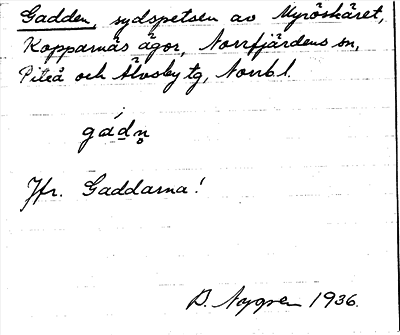 Gadden, sydspetsen av Nyröskäret,
Kopparnäs ägor, Norrfjärdens sn,
Piteå och Älvsby tg, Norrb l.
gád̲n̥
Jfr. Gaddarna!
B. Nygren 1936.